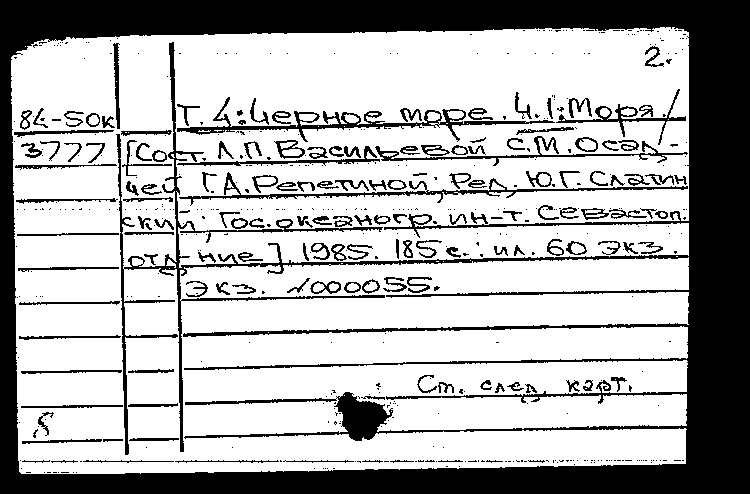 2.
84-50к Т. 4: Черное море. Ч. 1: Моря /
3777 [Сост. Л.П. Васильевой, С.М. Осад-
чей, Г.А. Репетиной; Ред. Ю.Г. Слатин
ский; Гос. океаногр. ин-т. Севастоп.
отд-ние]. 1985. 185 с.: ил. 60 экз.
Экз. №000055.
Ст. след. карт.
8